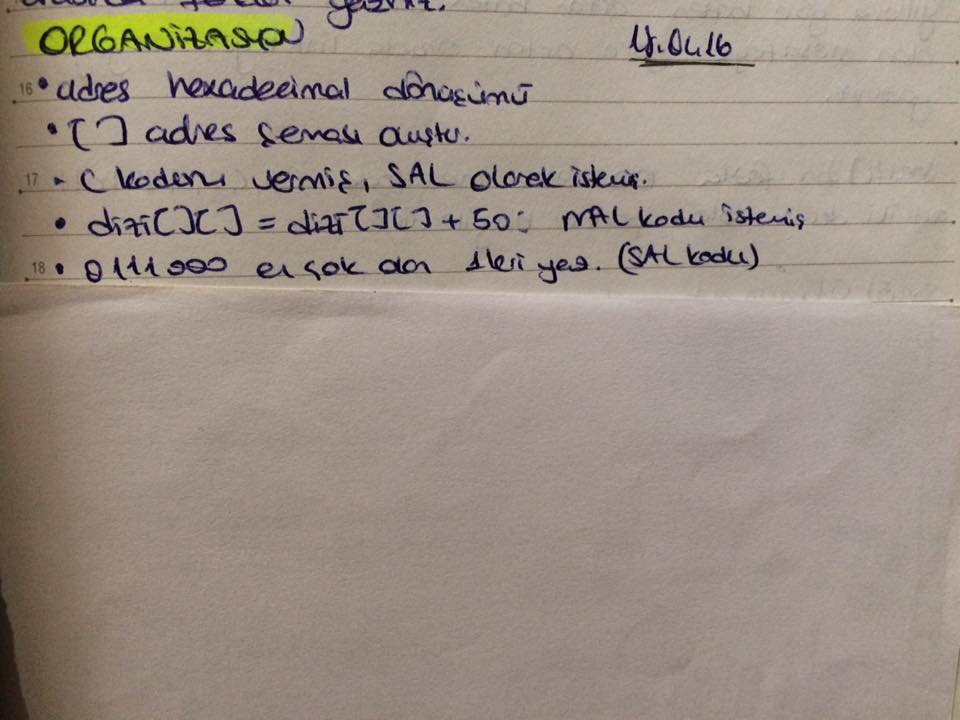 yazınız.
ORGANİZASYON
16 • adres hexadecimal dönüşümü
• [ ] adres şeması oluştur.
17 • C kodunu vermiş, SAL olarak istemiş.
• dizi[ ][ ] = dizi[ ][ ] + 50; MAL kodu istemiş
18 • 0111000 en çok olan 1leri yaz. (SAL kodu)